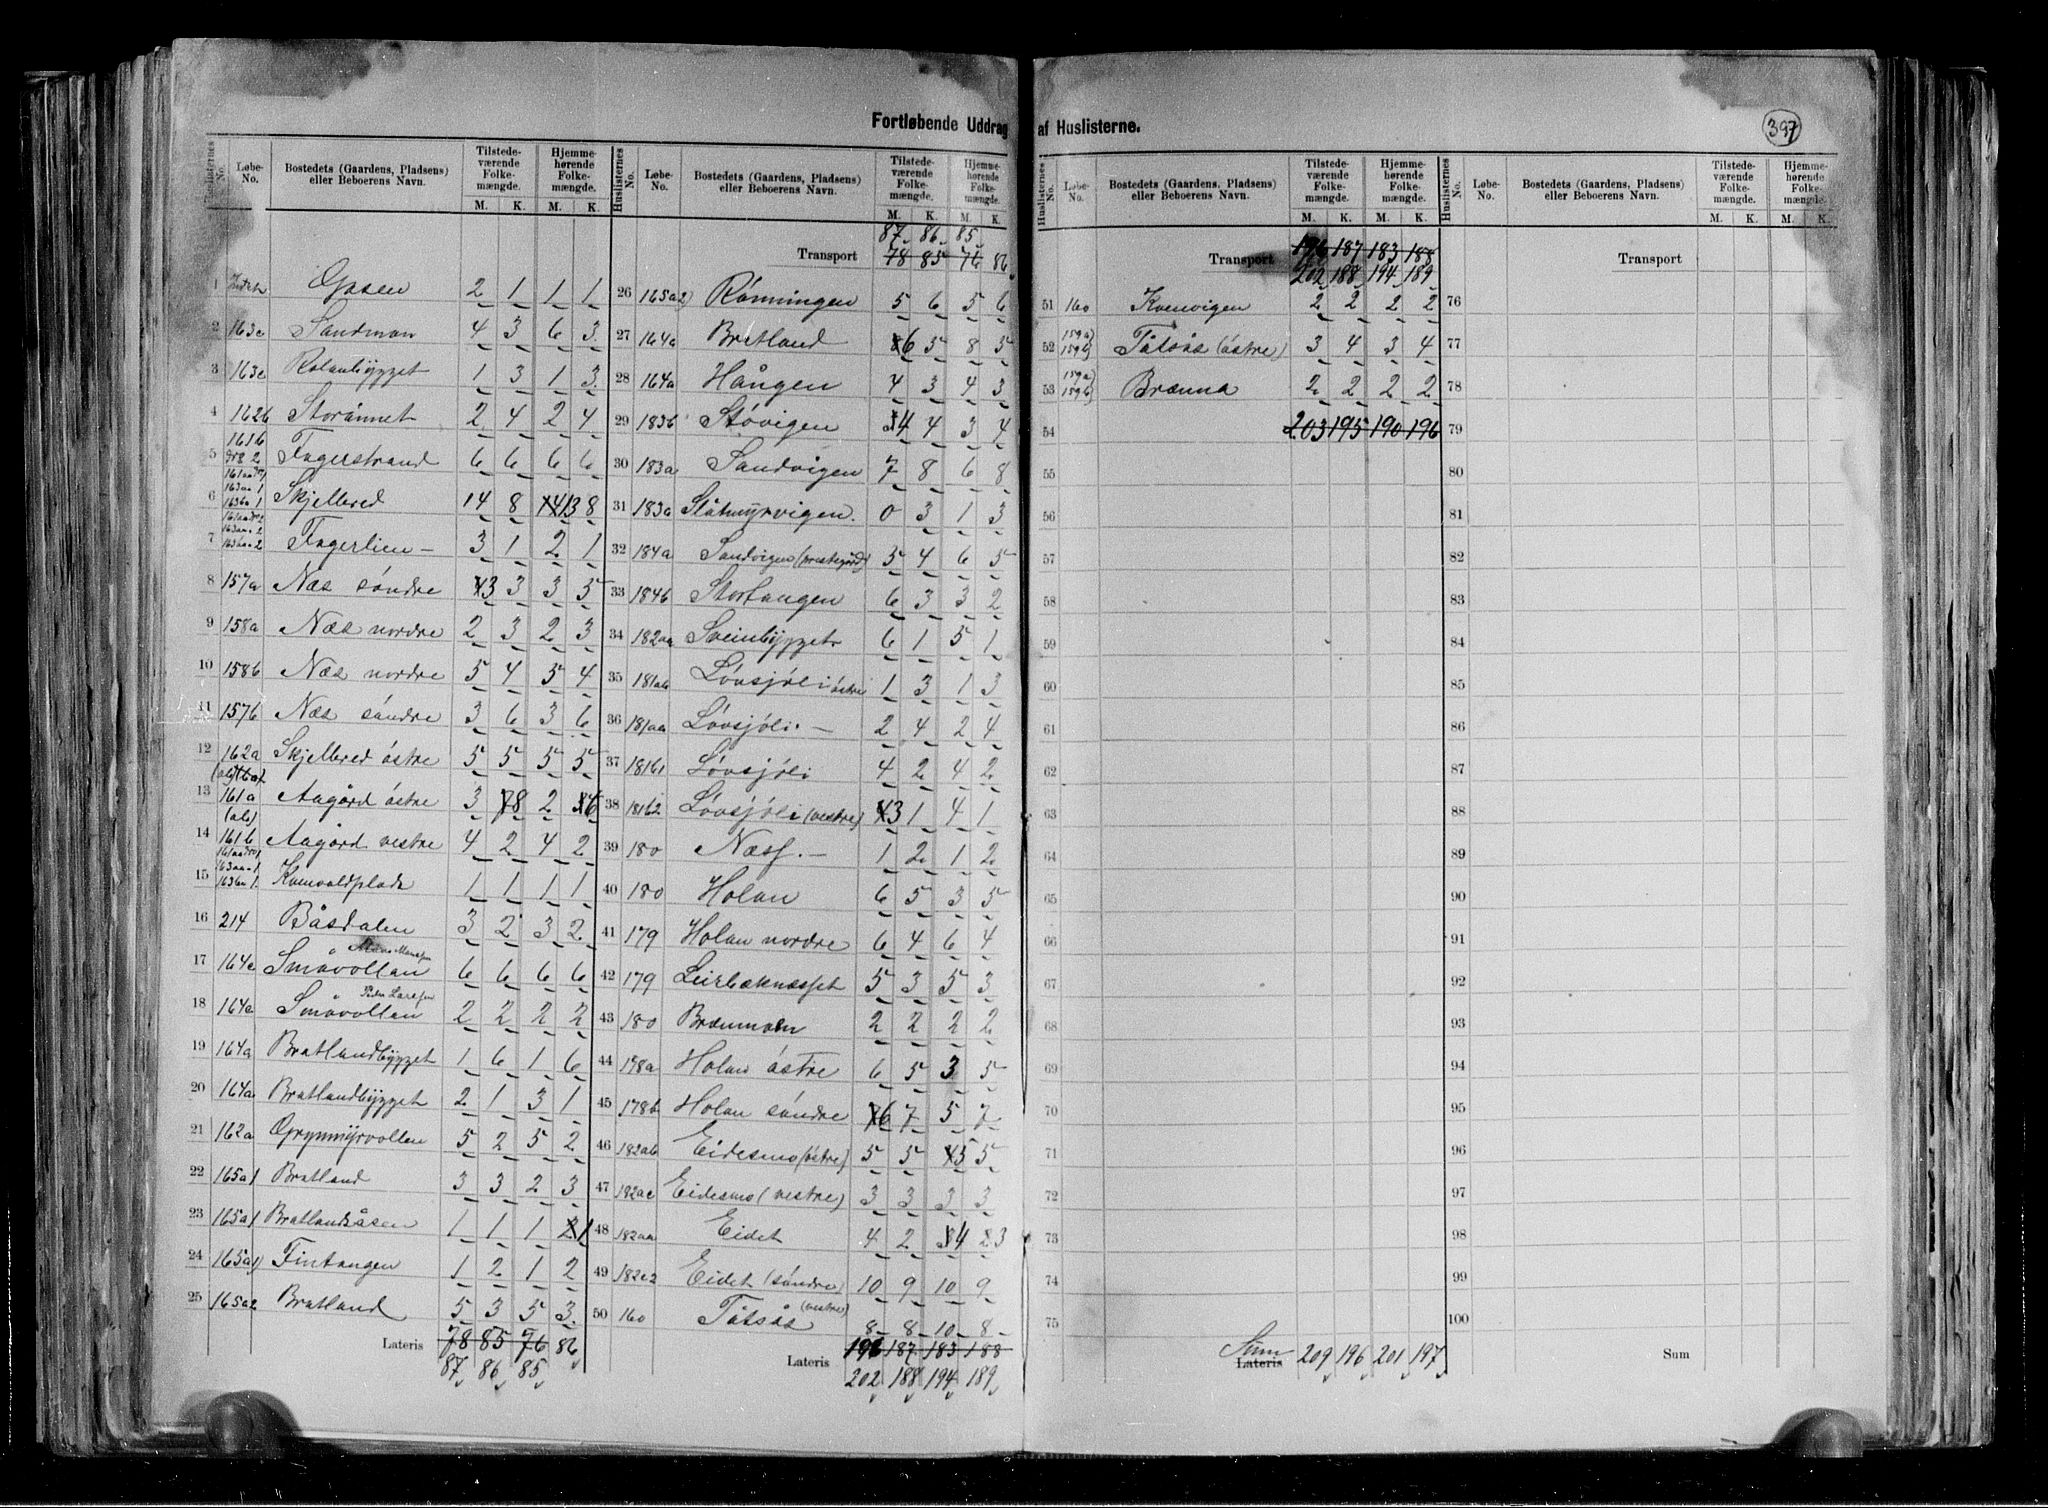 Fortløbende Uddrag af Huslisterne.
397
Huslisternes No. Løbe-No. Bostedets (Gaardens, Pladsens) eller Beboerens Navn. Tilstedeværende Folkemængde. M. K. Hjemmehørende Folkemængde. M. K.
1 Gasen 2 1 1 1
2 163c Sandmon 4 3 6 3
3 163c Rolanbygget 1 3 1 3
4 162b Storånnet 2 4 2 4
5 161b Fagerstrand 6 6 6 6
6 Skjellred 14 8 13 8
7 Fagerlien — 3 1 2 1
8 157a Næs søndre 3 3 3 5
9 158a Næs nordre 2 3 2 3
10 158b Næs nordre 5 4 5 4
11 157b Næs søndre 3 6 3 6
12 162a Skjellred östre 5 5 5 5
13 161a Aagård östre 3 8 2 6
14 161b Aagård vestre 4 2 4 2
15 Kunvaldplads 1 1 1 1
16 214 Båsdalen 3 2 3 2
17 164c Småvollan 6 6 6 6
18 164c Småvollan 2 2 2 2
19 164a Bratlandbygget 1 6 1 6
20 164a Bratlandbygget 2 1 3 1
21 162a Grynmyrvollen 5 2 5 2
22 165a1 Bratland 3 3 2 3
23 165a1 Bratlandsåsen 1 1 1 1
24 165a1 Fintangen 1 2 1 2
25 165a2 Bratland 5 3 5 3
Lateris 78 85 76 86
87 86 85
Huslisternes No. Løbe-No. Bostedets (Gaardens, Pladsens) eller Beboerens Navn. Tilstedeværende Folkemængde. M. K. Hjemmehørende Folkemængde. M. K.
87 86 85
Transport 78 85 76 86
26 165a2 Rønningen 5 6 5 6
27 164a Bratland 6 5 8 5
28 164a Hången 4 3 4 3
29 183b Støvigen 4 4 3 4
30 183a Sandvigen 7 8 6 8
31 183a Slåtmyrvigen. 0 3 1 3
32 184a Sandvigen (prestegård) 5 4 6 5
33 184b Stortangen 6 3 3 2
34 182aa Sveinbygget 6 1 5 1
35 181ab Lövsjöli östre 1 3 1 3
36 181aa Lövsjöli. — 2 4 2 4
37 181b1 Lövsjöli 4 2 4 2
38 181b2 Lövsjöli (vestre) 3 1 4 1
39 180 Næsf. — 1 2 1 2
40 180 Holan 6 5 3 5
41 179 Holan nordre 6 4 6 4
42 179 Leirbæknæsset 5 3 5 3
43 180 Brænmoen 2 2 2 2
44 178a Holan östre 6 5 3 5
45 178b Holan söndre 6 7 5 7
46 182ab Eidesmo (östre) 5 5 5 5
47 182ac Eidesmo (vestre) 3 3 3 3
48 182aa Eidet 4 2 4 3
49 182c2 Eidet (söndre) 10 9 10 9
50 160 Tåtsås (vestre) 8 8 10 8
Lateris 196 187 183 188
202 188 194 189
Huslisternes No. Løbe-No. Bostedets (Gaardens, Pladsens) eller Beboerens Navn. Tilstedeværende Folkemængde. M. K. Hjemmehørende Folkemængde. M. K.
Transport 196 187 183 188
202 188 194 189
51 160 Kvenvigen 2 2 2 2
52 159a) 159b) Tåtsås (östre) 3 4 3 4
53 159a) 159b) Brænna 2 2 2 2
54 203 195 190 196
55
56
57
58
59
60
61
62
63
64
65
66
67
68
69
70
71
72
73
74
75
Sum Lateris 209 196 201 197
Huslisternes No. Løbe-No. Bostedets (Gaardens, Pladsens) eller Beboerens Navn. Tilstedeværende Folkemængde. M. K. Hjemmehørende Folkemængde. M. K.
Transport
76
77
78
79
80
81
82
83
84
85
86
87
88
89
90
91
92
93
94
95
96
97
98
99
100
Sum